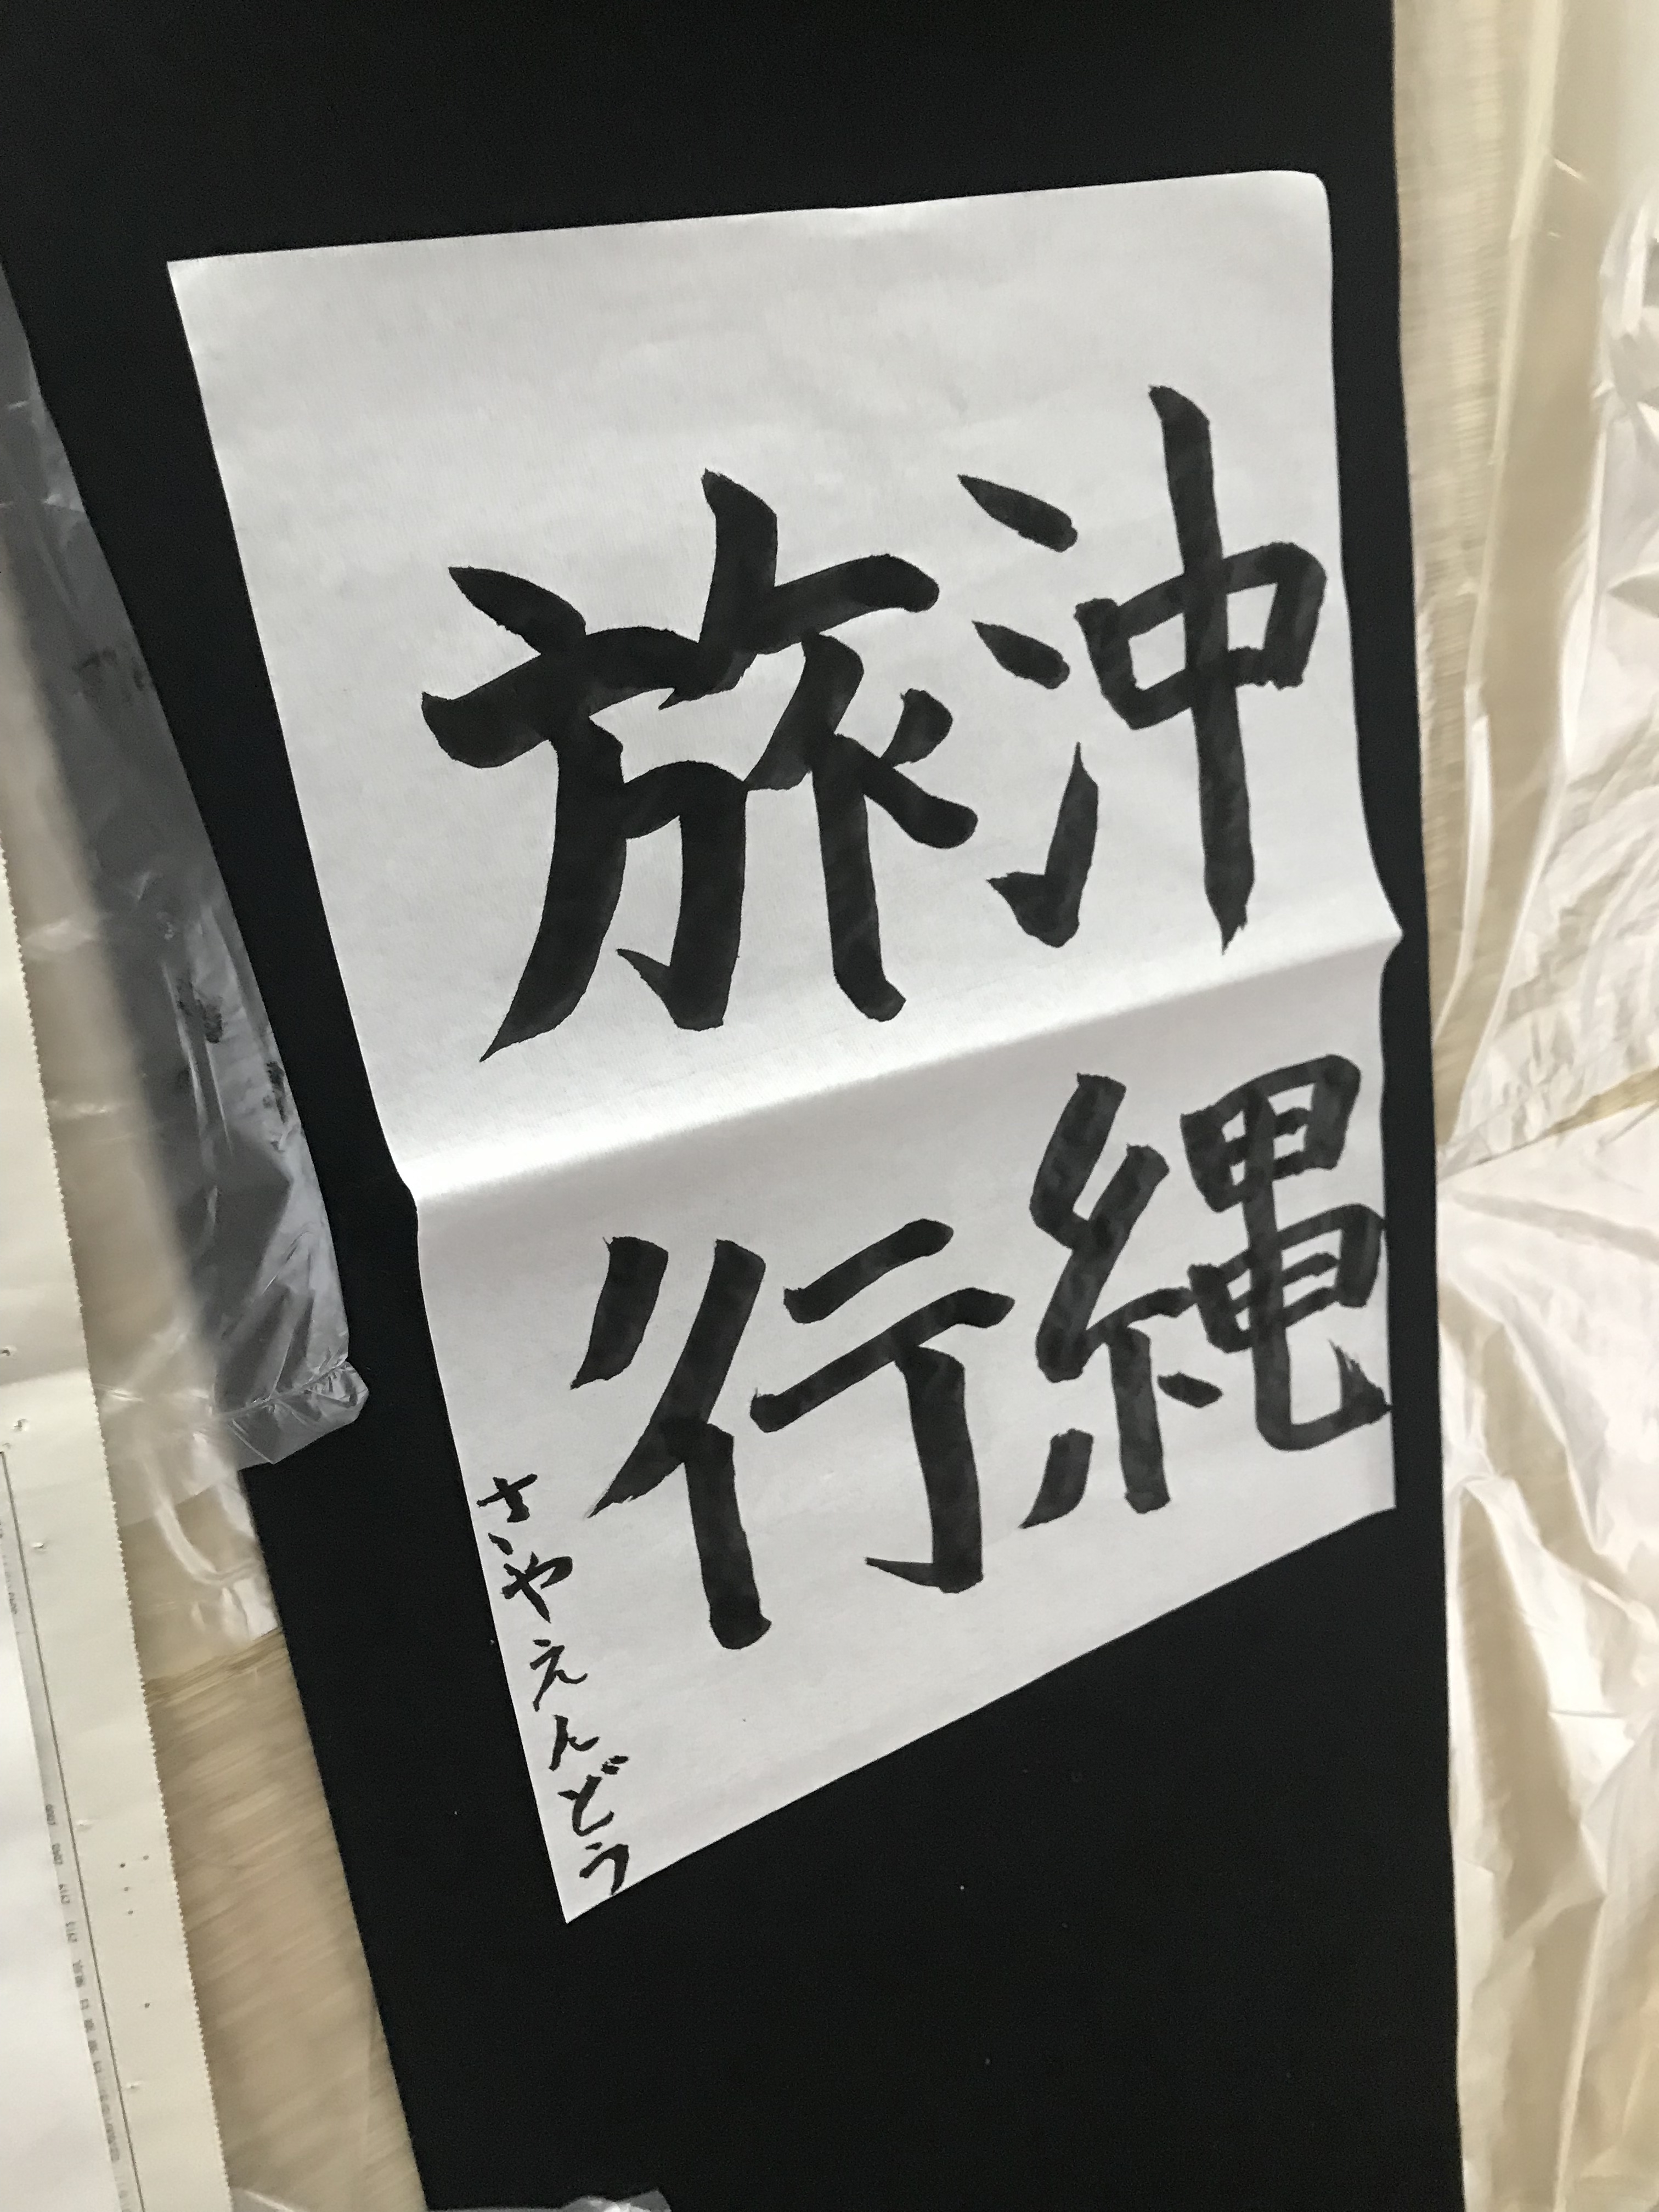 沖縄
旅行
さやえんどう